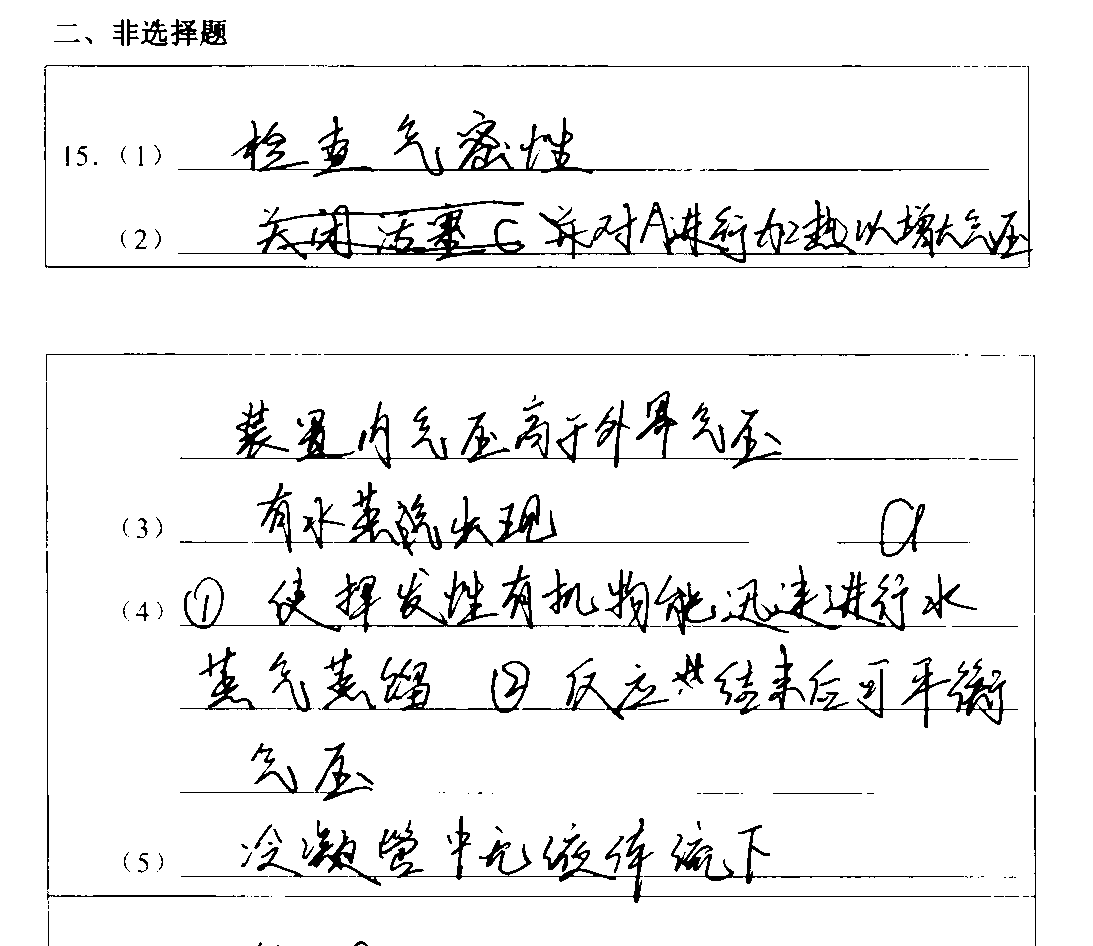 二、非选择题
15.（1） 检查气密性
（2） 关闭活塞C 并对A进行加热以增大气压
装置内气压高于外界气压
（3） 有水蒸汽出现 a
（4） ① 使挥发性有机物能迅速进行水
蒸气蒸馏 ② 反应结束后可平衡
气压
（5） 冷凝管中无液体流下